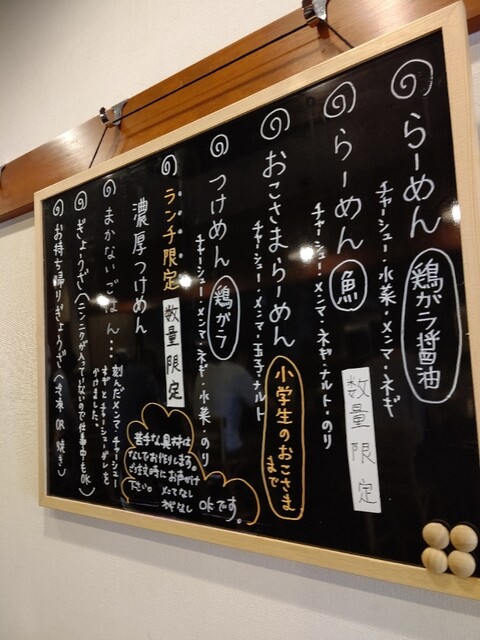 らーめん 鶏ガラ醤油
チャーシュー・水菜・メンマ・ネギ
らーめん 魚 数量限定
チャーシュー・メンマ・ネギ・ナルト・のり
おこさまらーめん 小学生のおこさままで
チャーシュー・メンマ・玉子・ナルト
つけめん 鶏ガラ
チャーシュー・メンマ・ネギ・水菜・のり
ランチ限定 数量限定
濃厚つけめん
苦手な具材は
なしでお作りします。
ご注文時にお声がけ
下さい。
メンマなし
ネギなし
OKです。
まかないごはん…
刻んだメンマ・チャーシュー
ネギとチャーシューダレを
かけました。
ぎょーうざ(ニンニクが入っていないので仕事中もOK)
お持ち帰りぎょうざ(冷凍 OR 焼き)